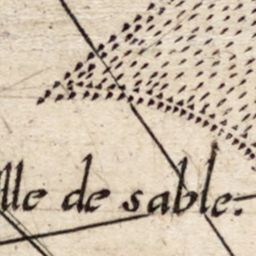 lle de sable.